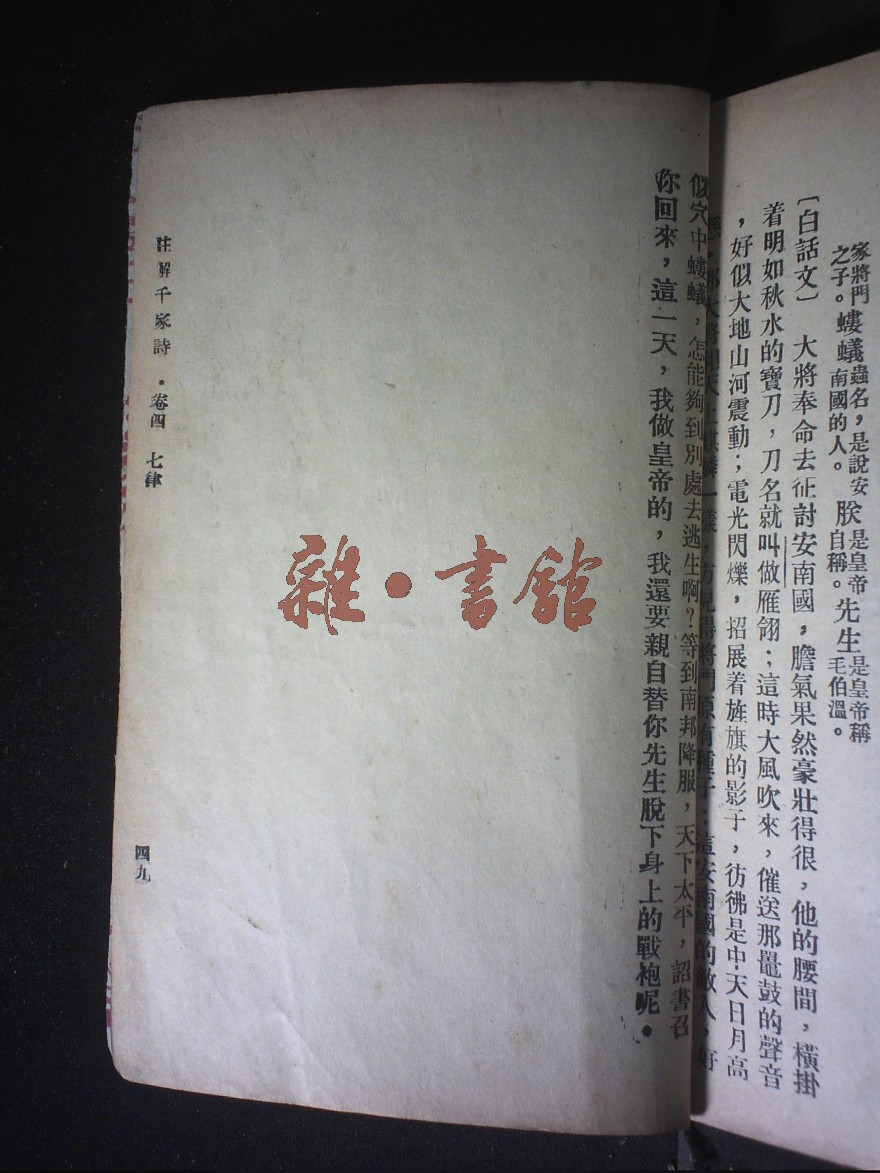 家將門
之子。螻蟻蟲名，是說安
南國的人。朕是皇帝
自稱。先生是皇帝稱
毛伯溫。
〔白話文〕 大將奉命去征討安南國，膽氣果然豪壯得很，他的腰間，橫掛
着明如秋水的寶刀，刀名就叫做雁翎；這時大風吹來，催送那鼉鼓的聲音
，好似大地山河震動；電光閃爍，招展着旌旗的影子，彷彿是中天日月高
天上麒麟一樣，方見得將門原有種子：這安南國的敵人，好
似穴中螻蟻，怎能夠到別處去逃生啊？等到南邦降服，天下太平，詔書召
你回來，這一天，我做皇帝的，我還要親自替你先生脫下身上的戰袍呢。
註解千家詩 · 卷四 七律
四九
雜·書館